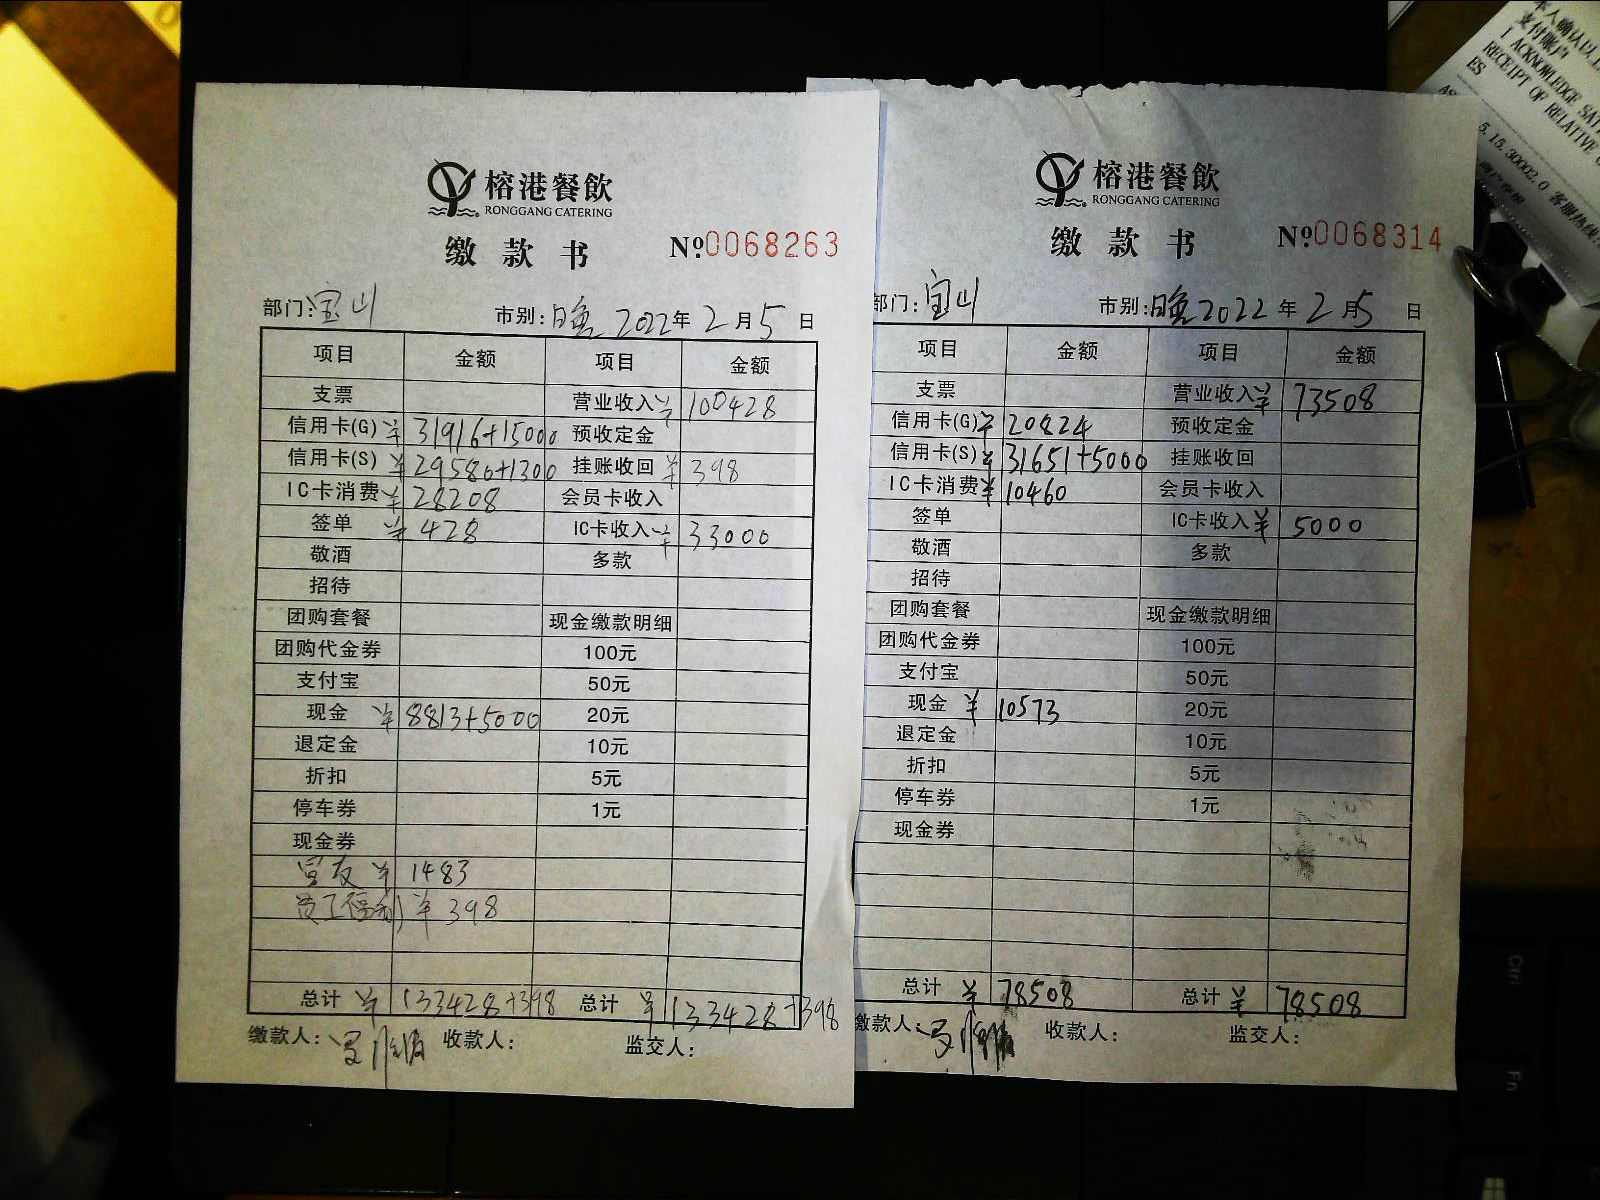 榕港餐飲
RONGGANG CATERING
缴款书 №0068263
部门:宝山 市别:晚 2022年2月5日
项目 金额 项目 金额
支票 营业收入 ¥100428
信用卡(G) ¥31916+15000 预收定金
信用卡(S) ¥29580+1300 挂账收回 ¥398
IC卡消费 ¥28208 会员卡收入
签单 ¥428 IC卡收入 ¥33000
敬酒 多款
招待
团购套餐 现金缴款明细
团购代金券 100元
支付宝 50元
现金 ¥8813+5000 20元
退定金 10元
折扣 5元
停车券 1元
现金券
¥1483
员工福利 ¥398
总计 ¥133428+398 总计 ¥133428+398
缴款人: 收款人: 监交人:
榕港餐飲
RONGGANG CATERING
缴款书 №0068314
部门:宝山 市别:晚 2022年2月5日
项目 金额 项目 金额
支票 营业收入 ¥73508
信用卡(G) ¥20824 预收定金
信用卡(S) ¥31651+5000 挂账收回
IC卡消费 ¥10460 会员卡收入
签单 IC卡收入 ¥5000
敬酒 多款
招待
团购套餐 现金缴款明细
团购代金券 100元
支付宝 50元
现金 ¥10573 20元
退定金 10元
折扣 5元
停车券 1元
现金券
总计 ¥78508 总计 ¥78508
缴款人: 收款人: 监交人:
本人确认以上
支付账户
I ACKNOWLEDGE SAT
RECEIPT OF RELATIVE
ES
5.15.30002.0 客服热线
Ctrl
Fn